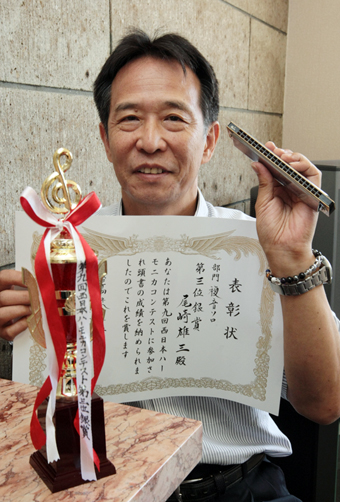 表彰状
部門 複音ソロ
第三位銀賞
尾崎雄三殿
あなたは第九回西日本ハー
モニカコンテストに参加さ
れ頭書の成績を納められま
したのでこれを賞します
第九回西日本ハーモニカコンテスト第三位銀賞